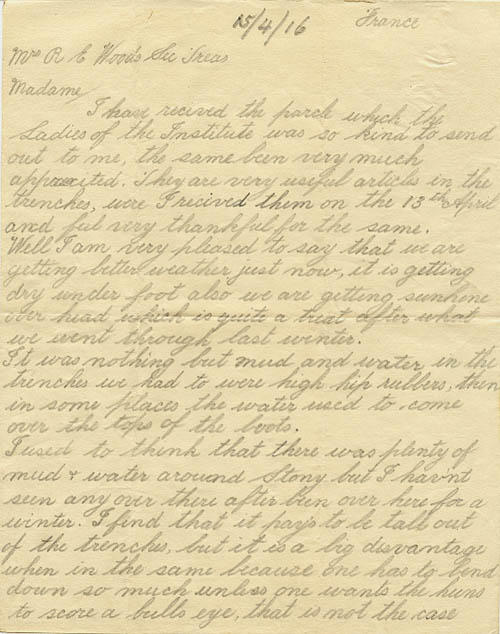 15/4/16 France
Mrs R E Woods Sec Treas
Madame,
I have recived the parcle which the
Ladies of the Institute was so kind to send
out to me, the same been very much
appreceited. They are very useful articles in the
trenches, were I recived them on the 13th April
and feel very thankful for the same.
Well I am very pleased to say that we are
getting better weather just now, it is getting
dry under foot also we are getting sunshine
over head which is quite a treat after what
we went through last winter.
It was nothing but mud and water in the
trenches we had to were high hip rubbers, then
in some places the water used to come
over the tops of the boots.
I used to think that there was plenty of
mud & water around Stony but I hav'nt
seen any over there after been over here for a
winter. I find that it pays to be tall out
of the trenches, but it is a big disvantage
when in the same because one has to bend
down so much unless one wants the huns
to score a bulls eye, that is not the case